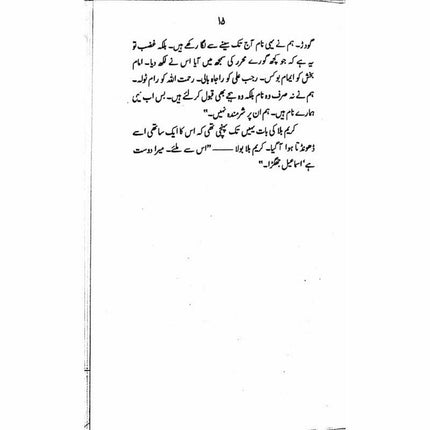 ۱۵
گودڑ۔ ہم نے یہی نام آج تک سینے سے لگا رکھے ہیں۔ بلکہ غضب تو
یہ ہے کہ جو کچھ گورے محرر کی سمجھ میں آیا اس نے لکھ دیا۔ امام
بخش کو ایمام بوکس۔ رجب علی کو راجاہ ہالی۔ رحمت اللہ کو رام نولہ۔
ہم نے نہ صرف وہ نام بلکہ وہ ہجے بھی قبول کر لئے ہیں۔ بس اب یہی
ہمارے نام ہیں۔ ہم ان پر شرمندہ نہیں۔"
کریم بلا کی بات یہیں تک پہنچی تھی کہ اس کا ایک ساتھی اسے
ڈھونڈتا ہوا آ گیا۔ کریم بلا بولا ——— "اس سے ملئے۔ میرا دوست
ہے' اسماعیل جھگڑا۔"